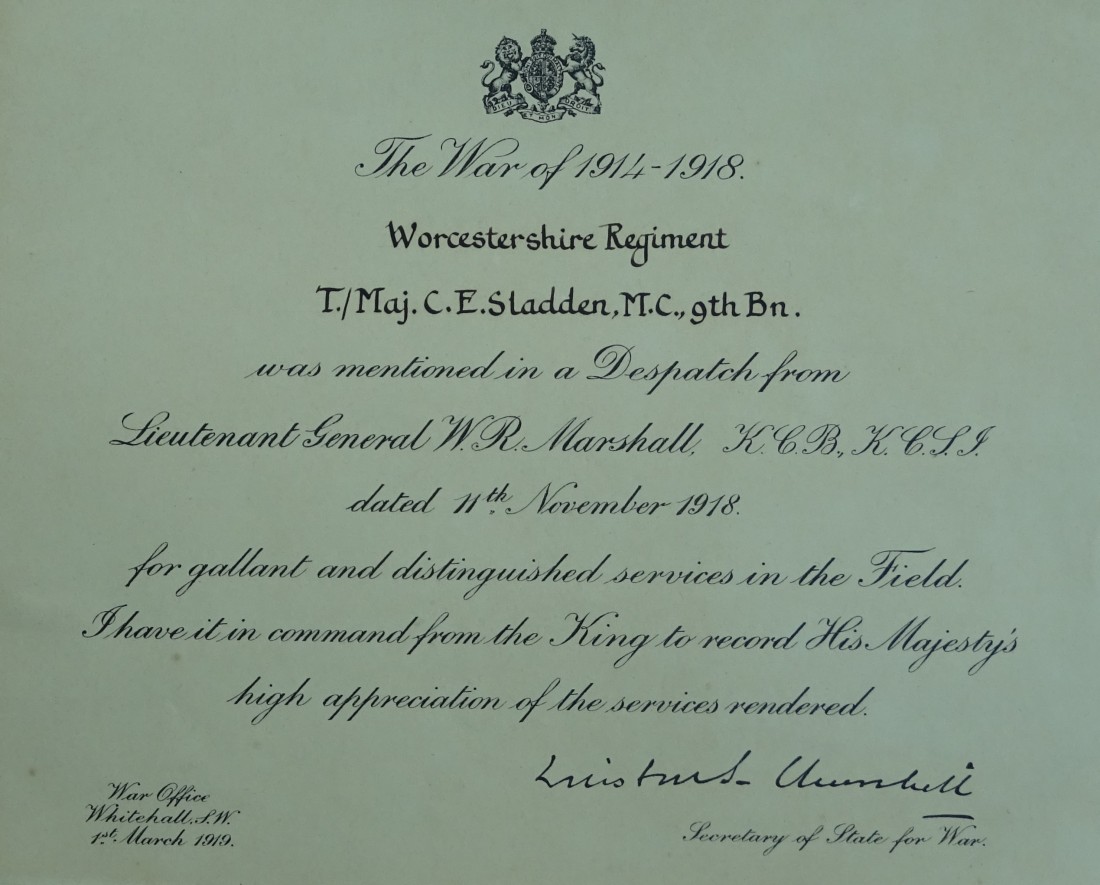 DIEU ET MON DROIT
The War of 1914-1918.
Worcestershire Regiment
T./Maj. C.E. Sladden, M.C., 9th Bn.
was mentioned in a Despatch from
Lieutenant General W.R. Marshall, K.C.B., K.C.S.I.
dated 11th November 1918.
for gallant and distinguished services in the Field.
I have it in command from the King to record His Majesty's
high appreciation of the services rendered.
Winston S. Churchill
War Office
Whitehall, S.W.
1st March 1919.
Secretary of State for War.